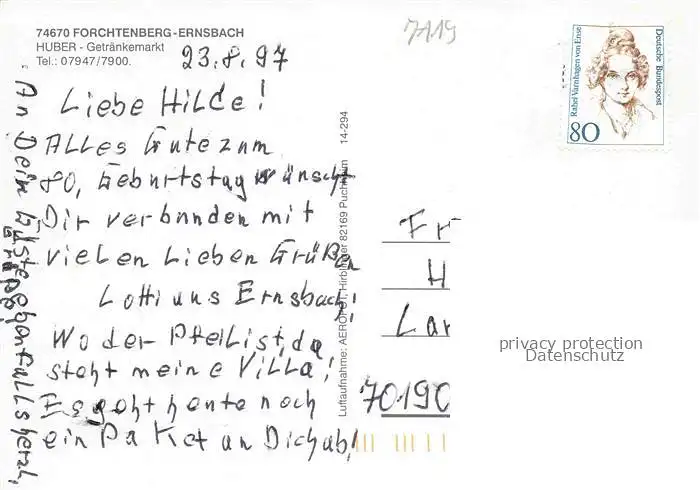 74670 FORCHTENBERG-ERNSBACH
HUBER - Getränkemarkt
Tel.: 07947/7900.
23.8.97
7A19
Liebe Hilde!
Alles Gute zum
80, Geburtstag wünscht
Dir verbunden mit
vielen lieben Grüßen
Lotti uns Ernsbach!
Wo der Pfeil ist, da
steht meine Villa!
Es geht heute noch
ein Paket an Dich ab!
An Dein
ebenfalls herzl,
Luftaufnahme: AEROPOT, Hirblinger 82169 Puchheim 14-294
Rahel Varnhagen von Ense
Deutsche Bundespost
80
Fr
H
Lan
70190
privacy protection
Datenschutz